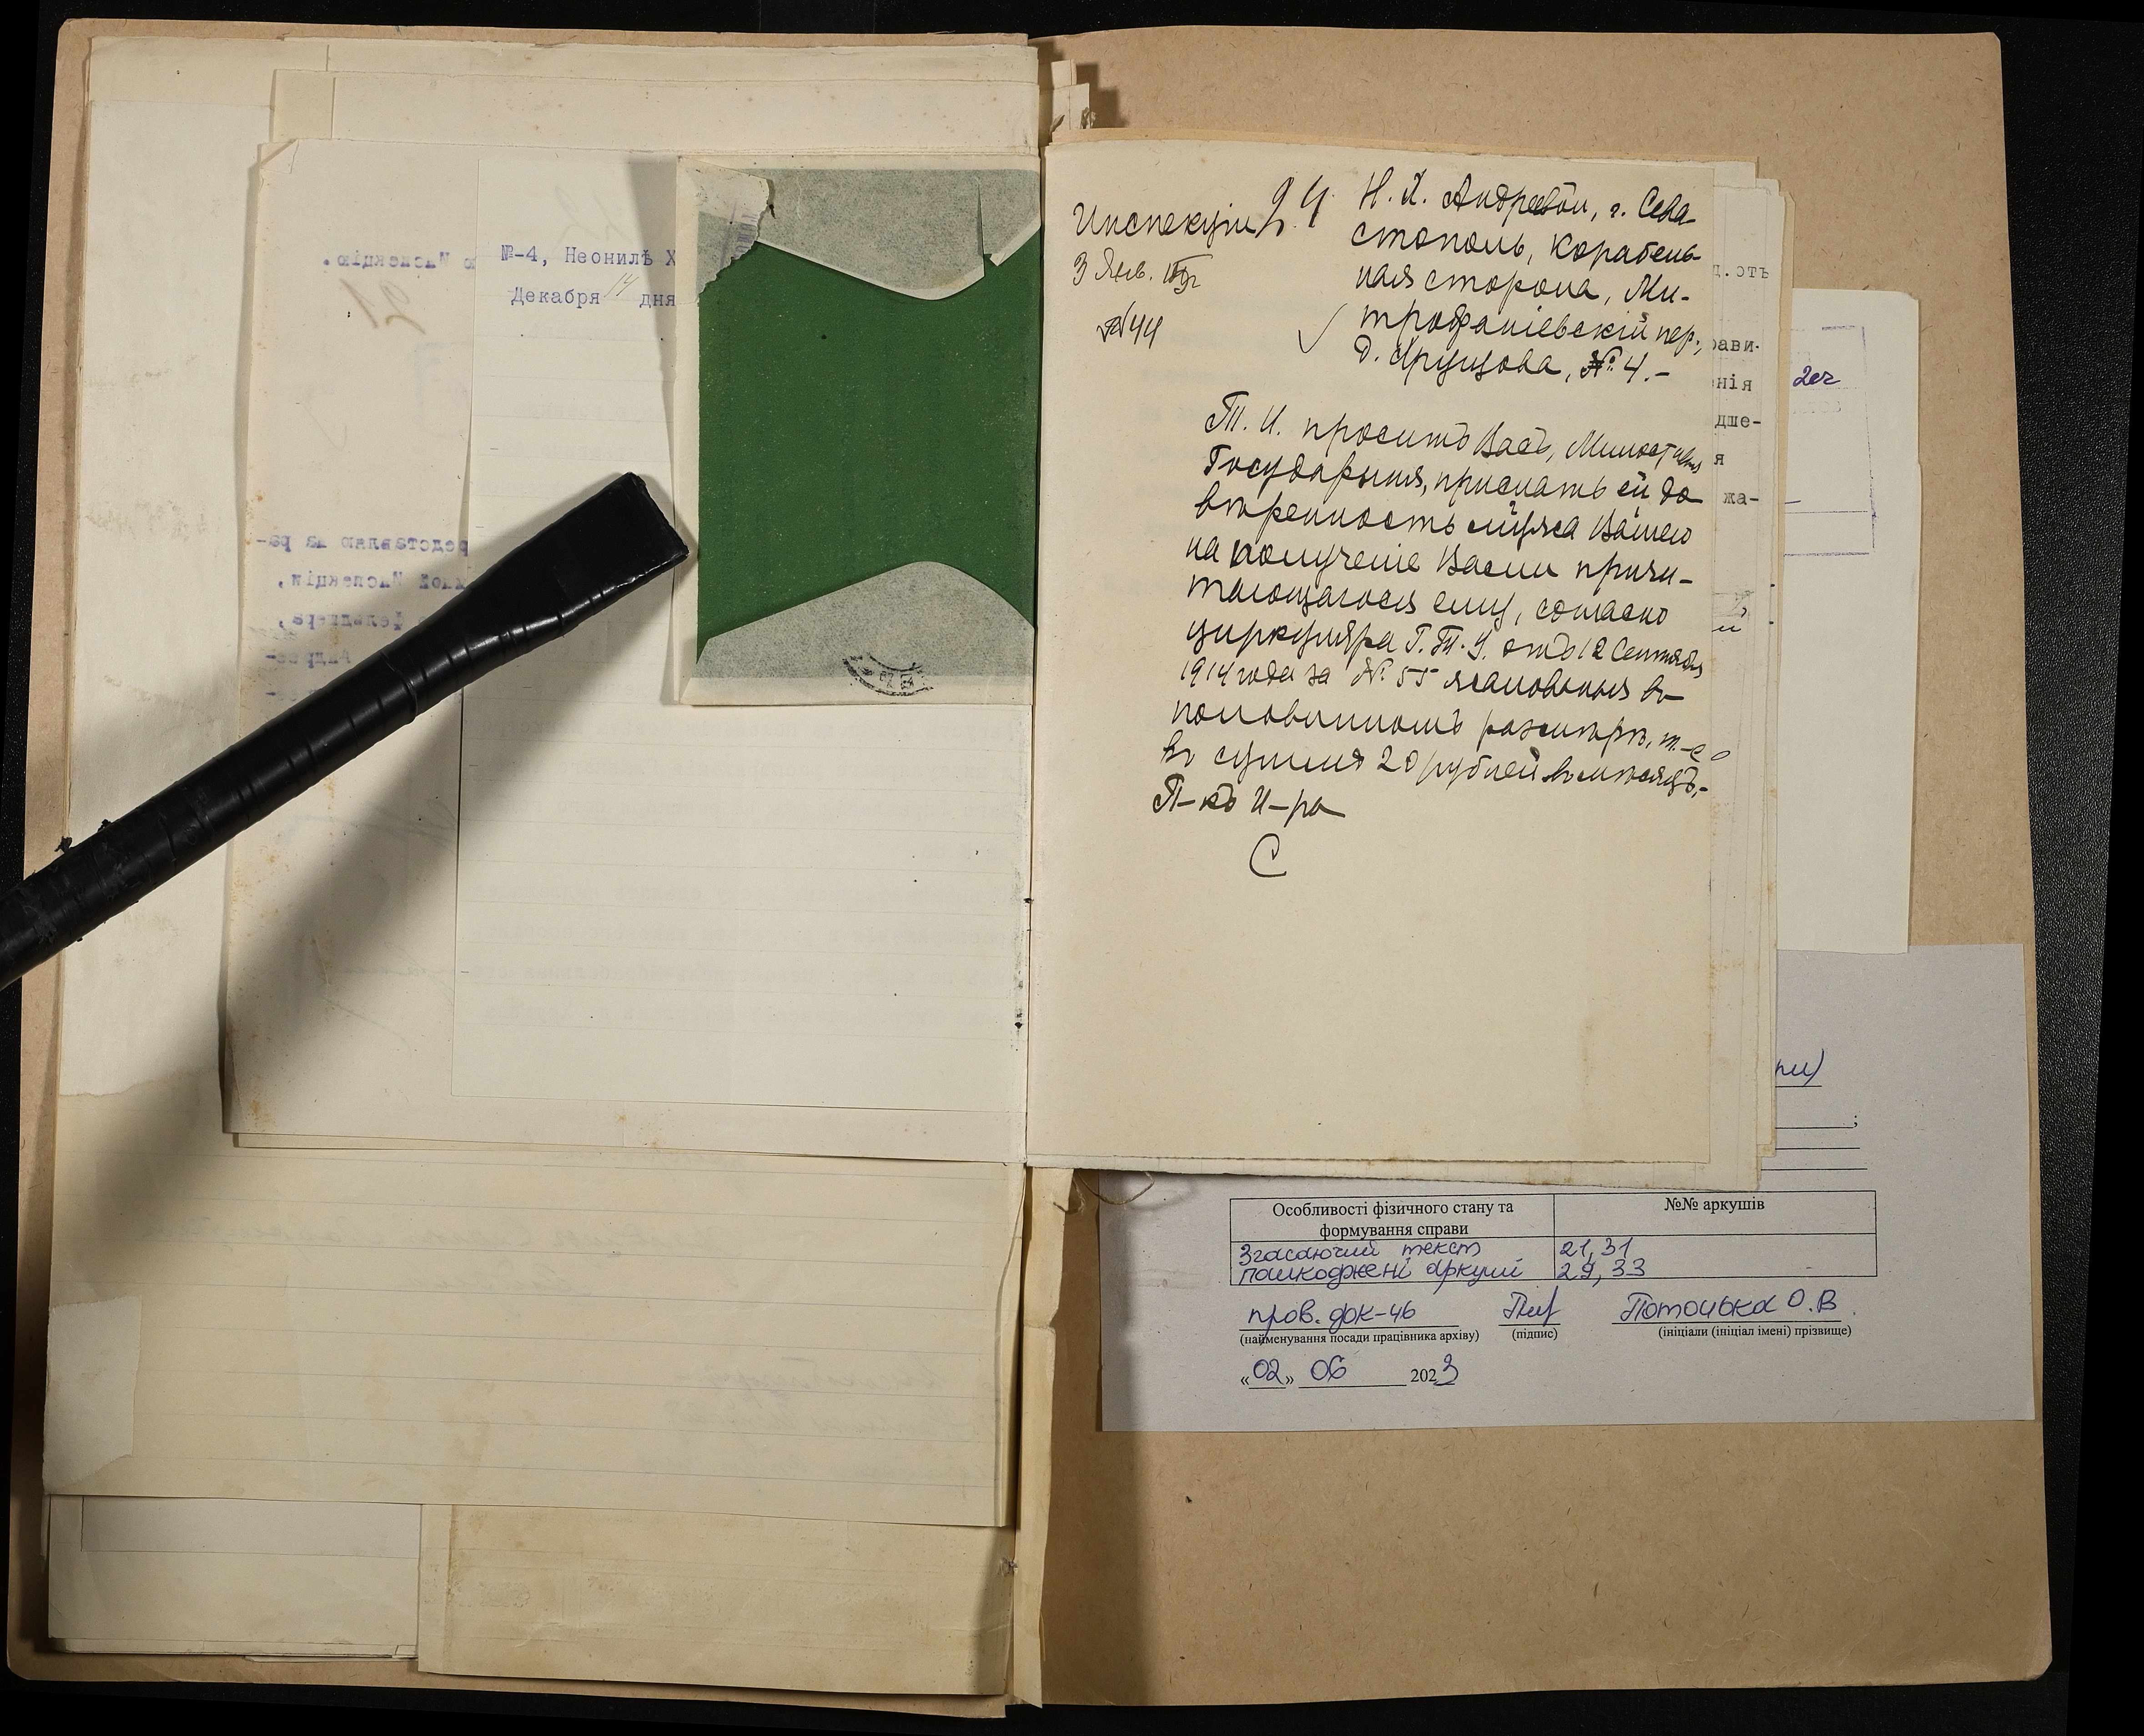 №-4, Неонилѣ Х
Декабря 14 дня
21
Инспекціи
24
3 Янв.
№44
Н. Х. Андреевой, г. Сева-
стополь, Корабель-
ная сторона, Ми-
трофаніевскій пер.,
д. №4.-
Т. И. проситъ Васъ, Милостивая
Государыня, прислать ей до
вѣренность мужа Вашего
на полученіе Вами причи-
тающагося ему, согласно
циркуляра Г.Т.У. отъ 12 Сентября
1914 года за №55 жалованья въ
половинномъ размѣрѣ, т.-е
въ суммѣ 20 рублей въ мѣсяцъ.-
П-къ И-ра
С
д.отъ
рави-
нія
дше-
я
жа-
2ег
ри)
Особливості фізичного стану та
формування справи
№№ аркушів
Згасаючий текст 21, 31
пошкоджені аркуші 29, 33
пров. док-
(найменування посади працівника архіву)
(підпис)
О.В.
(ініціали (ініціал імені) прізвище)
«02» 06 2023